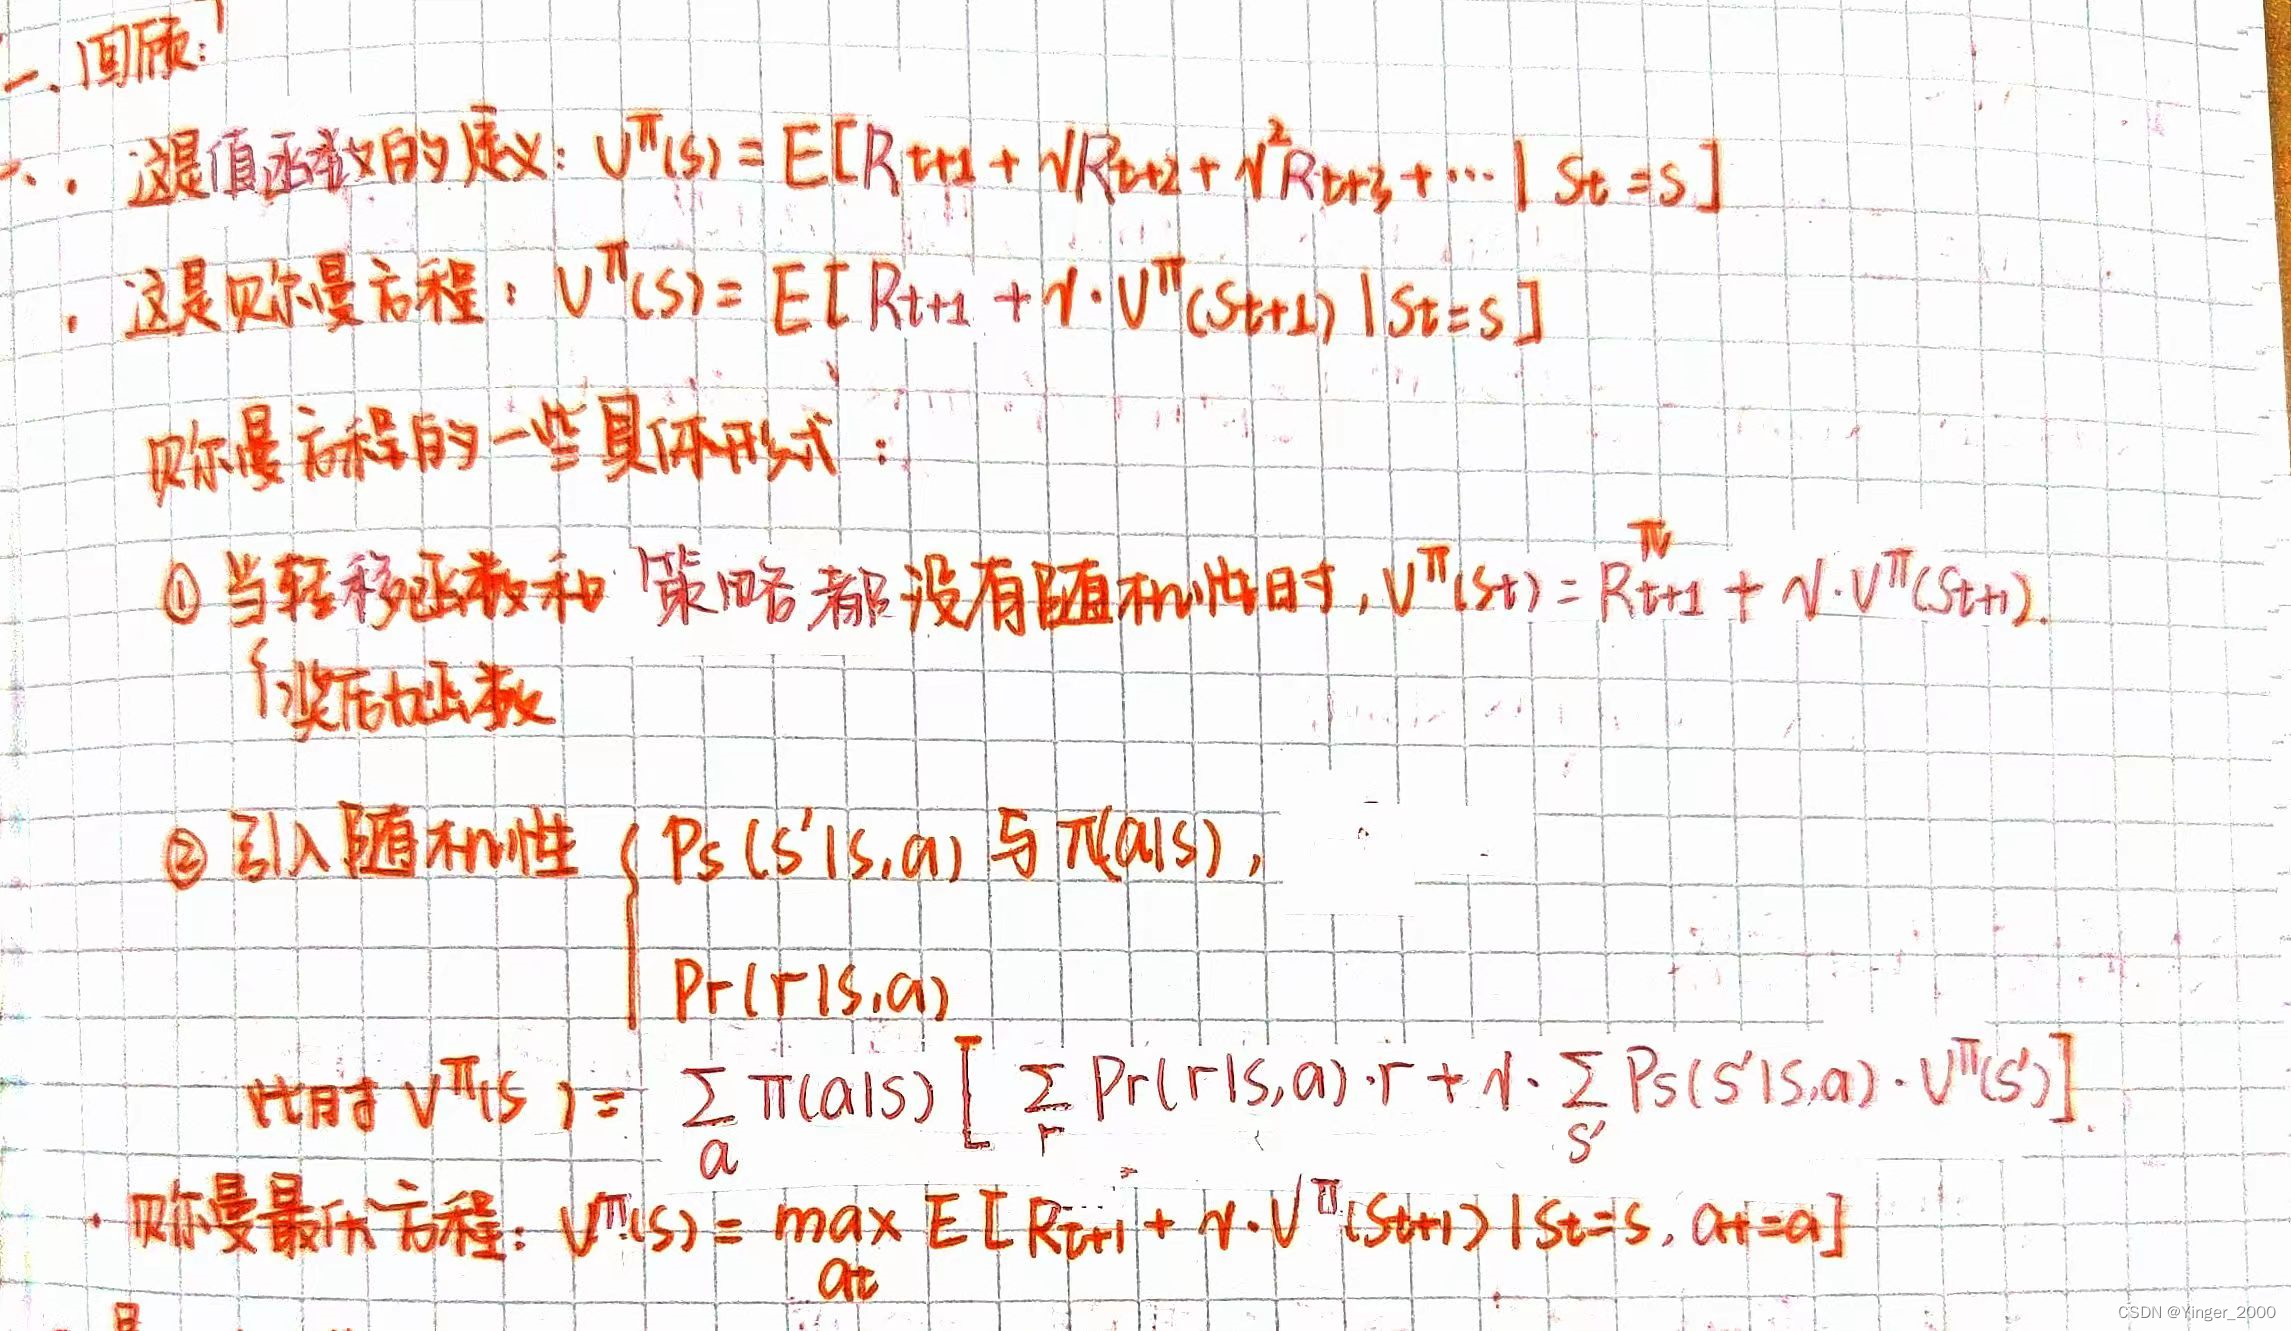 一、回顾：
· 这是值函数的定义：V^π(s) = E[R_{t+1} + γR_{t+2} + γ²R_{t+3} + ··· | S_t = s]
· 这是贝尔曼方程：V^π(s) = E[R_{t+1} + γ·V^π(S_{t+1}) | S_t = s]
贝尔曼方程的一些具体形式：
① 当转移函数和策略都没有随机性时，V^π(S_t) = R^π_{t+1} + γ·V^π(S_{t+1}).
奖励函数
② 引入随机性 { Ps(s'|s,a) 与 π(a|s),
Pr(r|s,a)
此时 V^π(s) = Σ_a π(a|s) [ Σ_r Pr(r|s,a)·r + γ· Σ_{s'} Ps(s'|s,a)·V^π(s') ].
· 贝尔曼最优方程：V^π(s) = max_{a_t} E[R_{t+1} + γ·V^π(S_{t+1}) | S_t = s, a_t = a]
CSDN @Yinger_2000